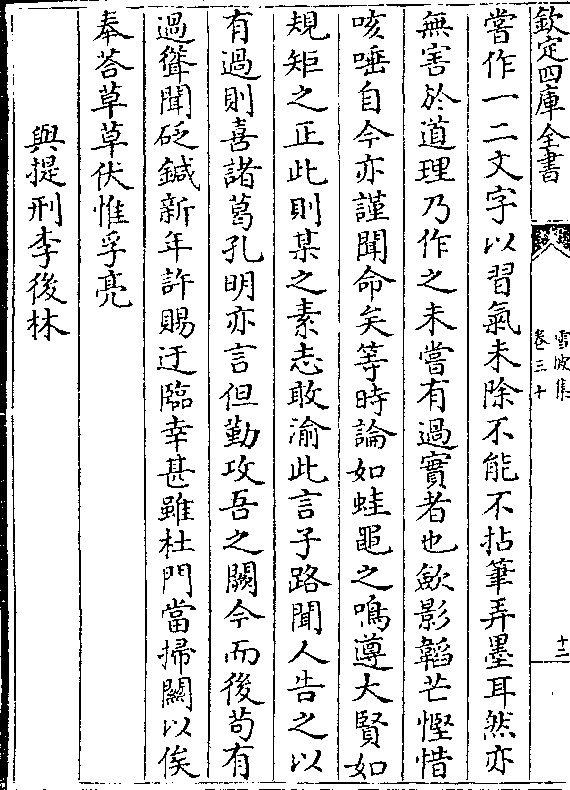 欽定四庫全書
雪坡集
卷三十
十二
嘗作一二文字以習氣未除不能不拈筆弄墨耳然亦
無害於道理乃作之未嘗有過實者也歛影韜芒慳惜
咳唾自今亦謹聞命矣等時論如蛙黽之鳴遵大賢如
規矩之正此則某之素志敢渝此言子路聞人告之以
有過則喜諸葛孔明亦言但勤攻吾之闕今而後苟有
過聳聞砭鍼新年許賜迂臨幸甚雖杜門當掃闗以俟
奉荅草草伏惟孚亮
與提刑李後林